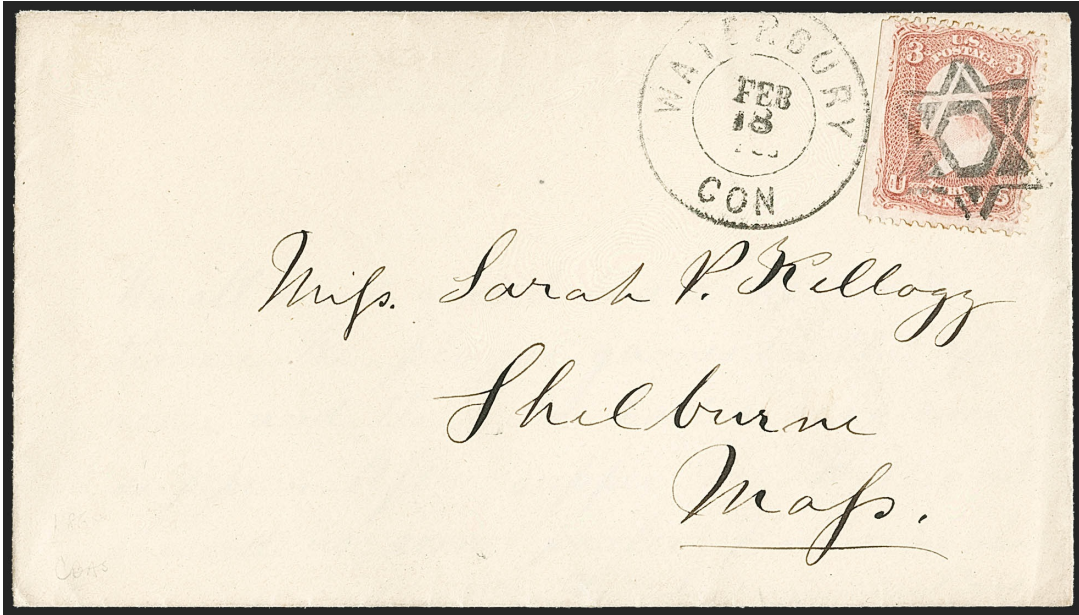 WATERBURY
FEB
18
CON
3 U.S. 3
POSTAGE
U
CEN
Miſs. Sarah P. Kellogg
Shelburne
Maſs.